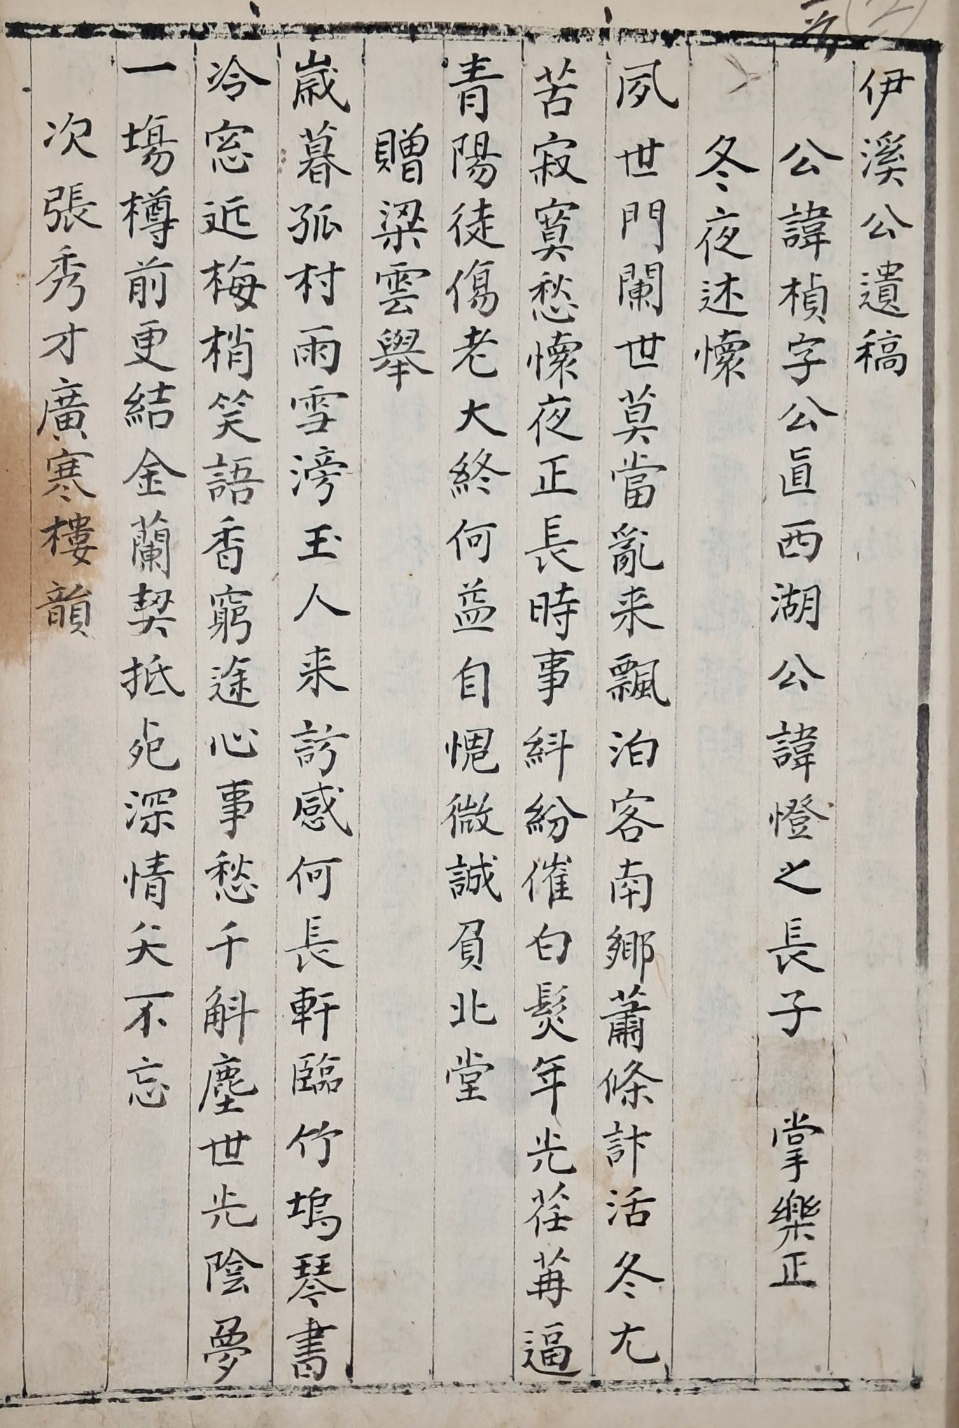 伊溪公遺稿
公諱楨字公眞西湖公諱憕之長子 掌樂正
冬夜述懷
夙世門闌世莫當亂来飄泊客南鄉蕭條計活冬尤
苦寂寞愁懷夜正長時事糾紛催白髮年光荏苒逼
青陽徒傷老大終何益自愧微誠負北堂
贈梁雲舉
歲暮孤村雨雪滂玉人来訪感何長軒臨竹塢琴書
冷窓近梅梢笑語香窮途心事愁千斛塵世光陰夢
一場樽前更結金蘭契抵死深情矢不忘
次張秀才廣寒樓韻